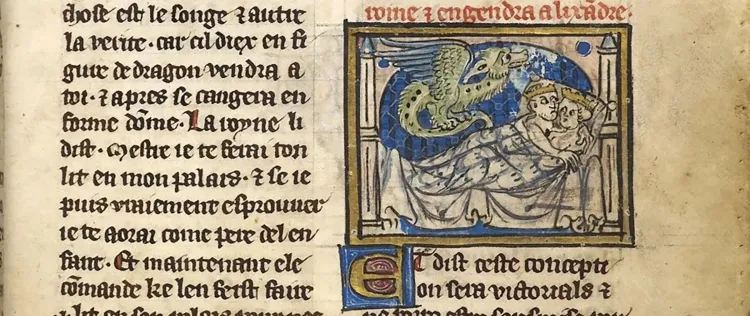 chose est le songe ⁊ autre
la verite · car cil diex en fi
gure de dragon vendra a
toi · ⁊ apres se cangera en
forme dōme · La royne li
dist · Mestre ie te ferai ton
lit en mon palais · ⁊ se ie
puis vraiement esprouver
ie te aorai come pere del en
fant · Et maintenant ele
cōmande ke len feist faire
lit en son palais
roine ⁊ engendra alixādre ·
Et dist ceste concepti
on sera victorials ⁊